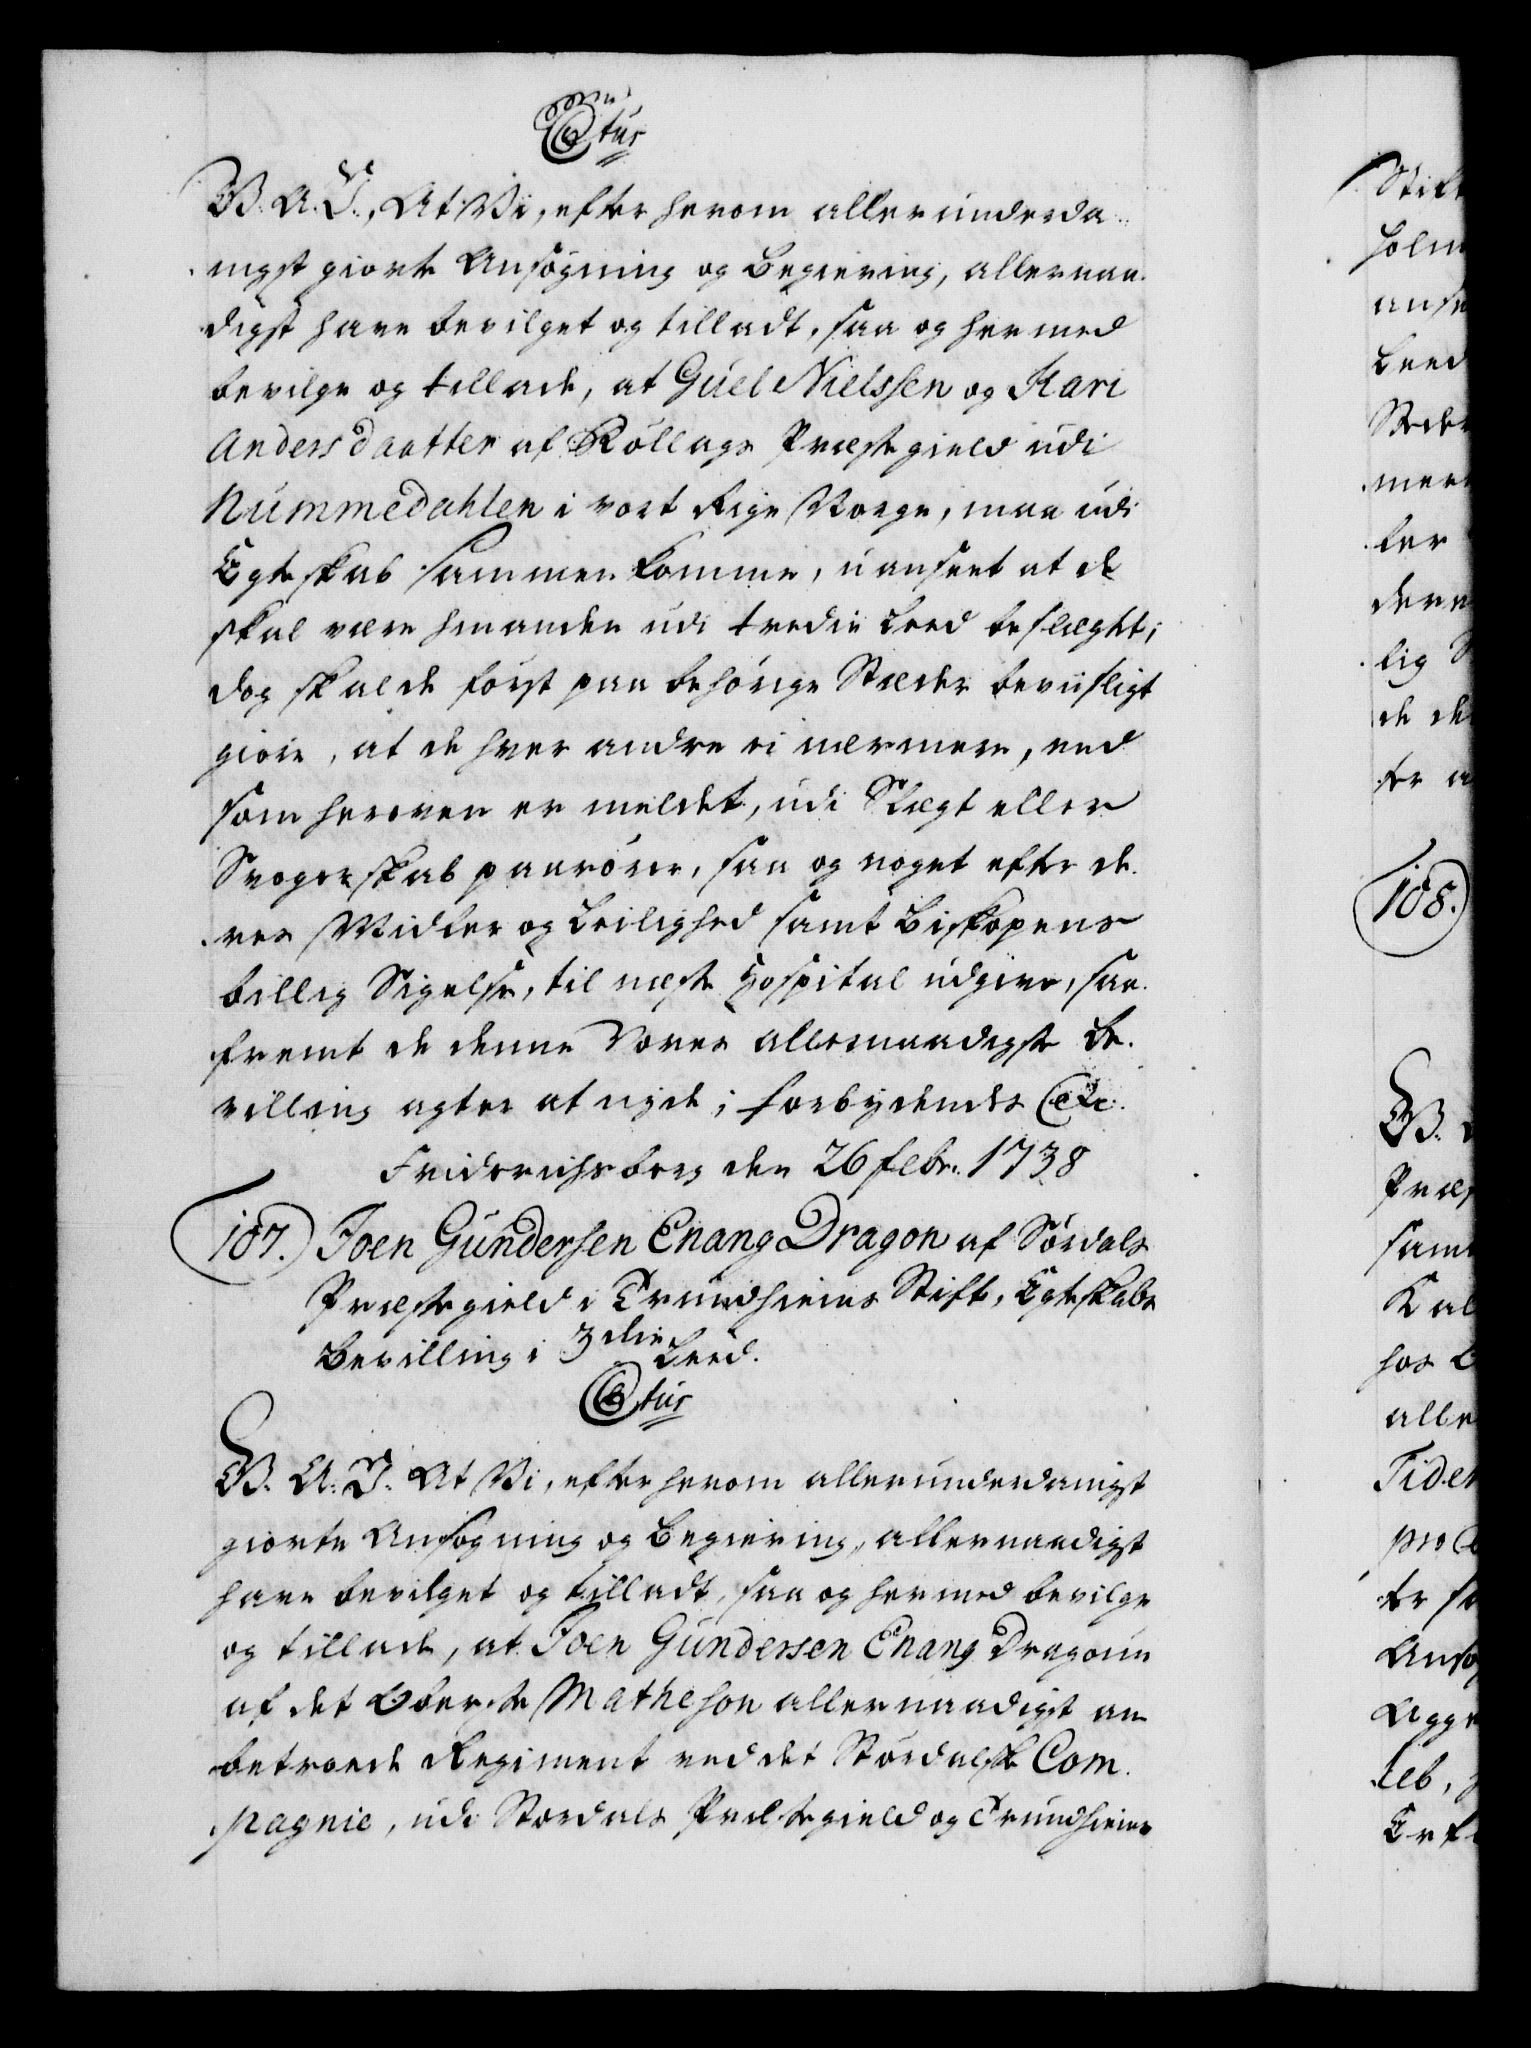 C6tus
G. A. V., At Vi, efter herom allerunderda-
nigst giorte Ansøgning og Begiering, allernaa-
digst have bevilget og tilladt, saa og hermed
bevilge og tillade, at Guel Nielssen og Kari
Andersdaatter af Rollags Præstegield udi
Nummedahlen i vort Rige Norge, maa udi
Egteskab sammen komme, uanseet at de
skal være hinanden udi tredie Leed beslægtt;
dog skal de først paa behørige Stæder beviisligt
giøre, at de hver andre ei nærmere, end
som heroven er meldet, udi Slægt eller
Svogerskab paarører, saa og noget efter de-
res Midler og Leilighed samt Biskopens
billig Sigelse, til næste Hospital udgive, saa-
fremt de denne Vores allernaadigste Be-
villing agter at nyde; Forbydendes Etc.
Friderichsberg den 26 Febr. 1738
107. Joen Gundersen Enang Dragon af Størdals
Præstegield i Trundhiems Stift, Egteskabs
Bevilling i 3die Leed.
C6tus
G. A. V. At Vi, efter herom allerunderdanigst
giorte Ansøgning og Begiering, allernaadigst
have bevilget og tilladt, saa og hermed bevilge
og tillade, at Joen Gundersen Enang Dragoun
af det Oberste Matheson allernaadigst an-
betroede Regiment ved det Størdalske Com-
pagnie, udi Størdals Præstegield og Trundhiems
108.